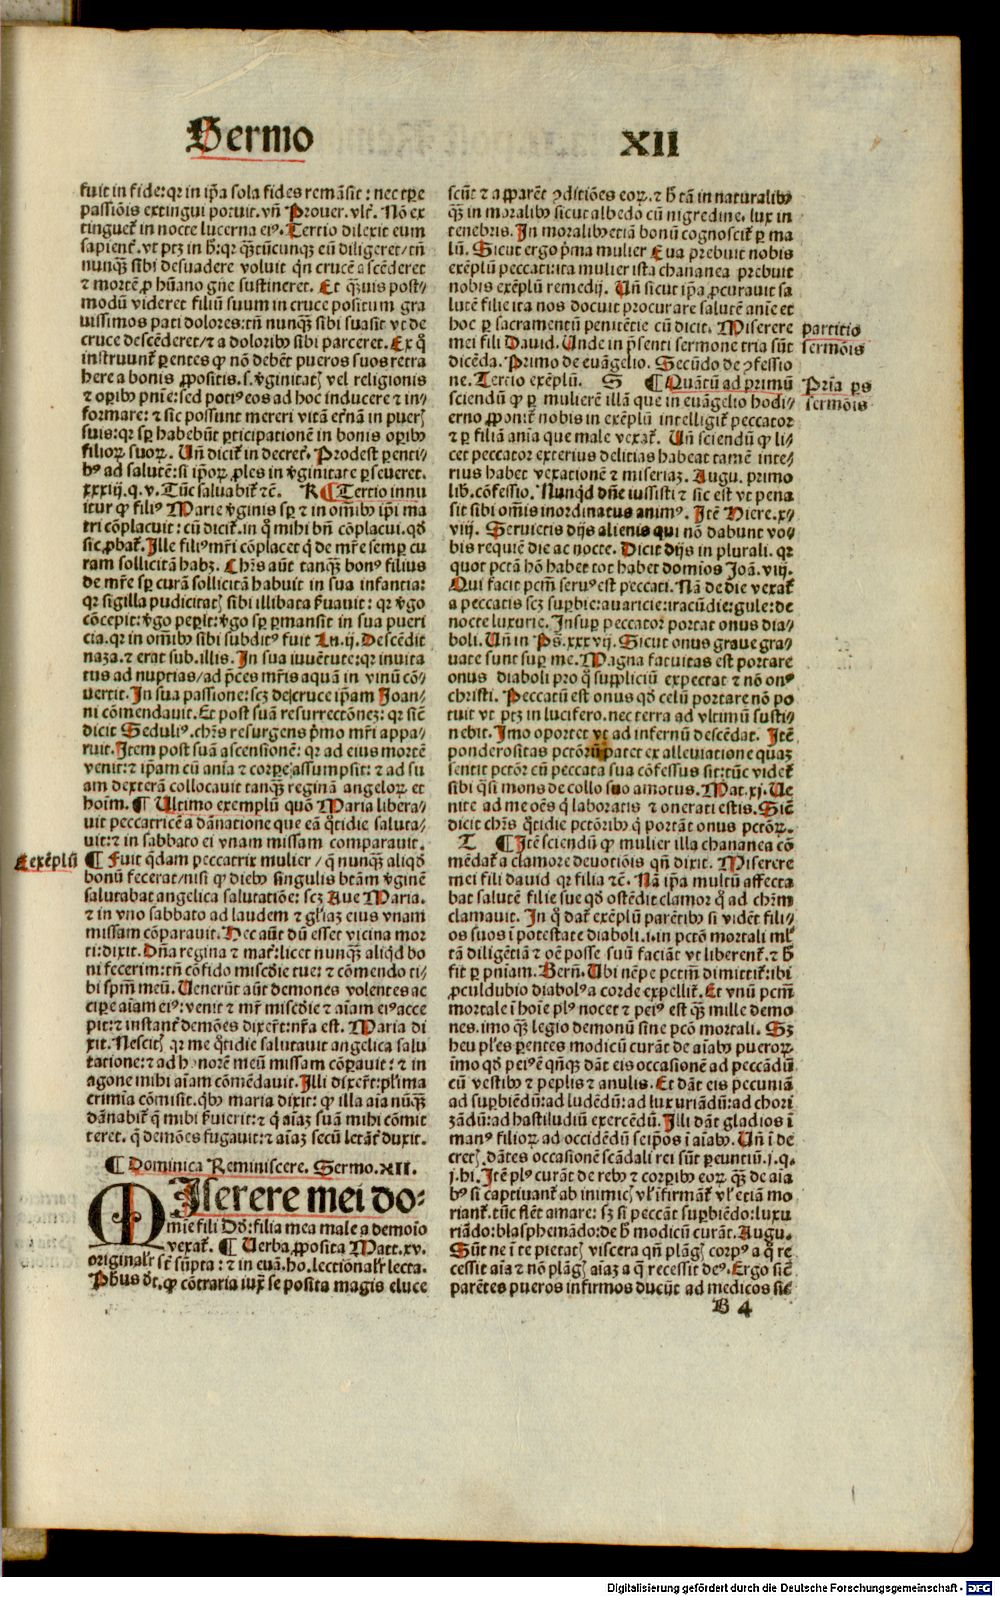 Sermo XII
fuit in fide: qr in ip̄a sola fides remāsit: nec tp̄e
passiōis extingui potuit. vn̄ Prouer. vlt̄. Nō ex
tinguet̄ in nocte lucerna eiꝰ. Tertio dilexit eum
sapient̄. vt ptꝫ in h̄: qr qq̄tūcunqꝫ eū diligeret/ tn̄
nunqꝫ sibi desuadere voluit qn̄ crucē ascēderet
⁊ mortē ꝓ hūano gn̄e sustineret. Et qꝫuis post⸗
modū videret filiū suum in cruce positum gra
uissimos pati dolores: tn̄ nunqꝫ sibi suasit vt de
cruce descēderet/ ⁊ a doloribꝰ sibi parceret. Ex q̄
instruunt̄ parentes qꝫ nō debēt pueros suos retra
here a bonis ꝓpositis. s. v̄ginitatꝭ vel religionis
⁊ oꝑibꝰ pn̄ie: sed potiꝰ eos ad hoc inducere ⁊ in⸗
formare: ⁊ sic possunt mereri vitā et̄nā in puerꝭ
suis: qr sꝑ habebūt ꝑticipationē in bonis oꝑibꝰ
filioꝝ suoꝝ. Un̄ dicit̄ in decret̄. Prodest ꝑenti⸗
bꝰ ad salutē: si ip̄oꝝ ꝓles in v̄ginitate ꝑseueret.
xxxiij. q. v. Tūc saluabit̄ ⁊c. R ¶ Tertio innu
itur qꝫ filiꝰ Marie v̄ginis sꝑ ⁊ in om̄ibꝰ ip̄i ma
tri cōplacuit: cū dicit̄. in q̄ mihi bn̄ cōplacui. qd̄
sic ꝓbat̄. Ille filiꝰ mr̄i cōplacet q̄ de mr̄e semꝑ cu
ram sollicitā habꝫ. Chr̄s aūt tanqꝫ bonꝰ filius
de mr̄e sꝑ curā sollicitā habuit in sua infantia:
qr sigilla pudicitatꝭ sibi illibata ẜuauit: qr v̄go
cōcepit: v̄go peꝑit: v̄go sꝑ ꝑmansit in sua pueri
cia. qr in om̄ibꝰ sibi subditꝰ fuit Lu. ij. Descēdit
nazā. ⁊ erat sub. illis. In sua iuuētute: qr inuita
tus ad nuptias/ ad p̄ces mr̄is aquā in vinū cō⸗
uertit. In sua passione: scꝫ de cruce ip̄am Joan⸗
ni cōmendauit. Et post suā resurrectōneꝫ: qr sic̄
dicit Seduliꝰ. chr̄s resurgens p̄mo mr̄i appa⸗
ruit. Item post suā ascensionē: qr ad eius mortē
venit: ⁊ ip̄am cū ania ⁊ corꝑe assumpsit: ⁊ ad su
am dexterā collocauit tanqꝫ reginā angeloꝝ et
hoīm. ¶ Ultimo exemplū quō Maria libera⸗
uit peccatricē a dānatione que eā q̄tidie saluta⸗
uit: ⁊ in sabbato ei vnam missam comparauit.
Exēplū
¶ Fuit qdam peccatrix mulier/ q̄ nunqꝫ aliqd̄
bonū fecerat/ nisi qꝫ diebꝰ singulis btām v̄ginē
salutabat angelica salutatiōe: scꝫ Aue Maria.
⁊ in vno sabbato ad laudem ⁊ gl̄iaꝫ eius vnam
missam cōparauit. Hec aūt dū esset vicina mor
ti: dixit. Dn̄a regina ⁊ mat̄: licet nunqꝫ aliqd bo
ni fecerim: tn̄ cōfido misc̄die tue: ⁊ cōmendo ti⸗
bi spm̄ meū. Uenerūt aūt demones volentes ac
cipe aīam eiꝰ: venit ⁊ mr̄ misc̄die ⁊ aīam eiꝰ acce
pit: ⁊ instant̄ demōes dixer̄t: nr̄a est. Maria di
xit. Nescitꝭ qr me q̄tidie salutauit angelica salu
tatione: ⁊ ad honorē meū missam cōꝑauit: ⁊ in
agone mihi aīam cōmēdauit. Illi dixer̄t: pl̄ima
crimīa cōmisit. qbꝰ maria dixit: qꝫ illa aīa nūqꝫ
dānabit̄ q̄ mihi ẜuierit: ⁊ q̄ aīaꝫ suā mihi cōmit
teret. q̄ demōes fugauit: ⁊ aīaꝫ secū letāt̄ duxit.
¶ Dominica Reminiscere. Sermo. XII.
MIserere mei do⸗
mīe fili Dd̄: filia mea male a demoīo
vexat̄. ¶ Uerba ꝓposita Matt. xv.
originalr̄ st̄ sūpta: ⁊ in euā. ho. lectionalr̄ lecta.
Ph̄us dt̄. qꝫ cōtraria iuxͣ se posita magis eluce
scūt ⁊ apparēt ꝯditiōes eoꝝ. ⁊ h̄ tā in naturalibꝰ
qꝫ in moralibꝰ sicut albedo cū nigredine. lux in
tenebris. In moralibꝰ etiā bonū cognoscit̄ ꝑ ma
lū. Sicut ergo p̄ma mulier Eua prebuit nobis
exēplū peccati: ita mulier ista chananea prebuit
nobis exēplū remedij. Un̄ sicut ip̄a ꝓcurauit sa
lutē filie ita nos docuit procurare salutē anīe et
hoc ꝑ sacramentū penitētie cū dicit. Miserere
partitio
mei fili Dauid. Unde in p̄senti sermone tria sūt
sermōis
dicēda. Primo de euāgelio. Secūdo de ꝯfessio
ne. Tertio exēplū. S ¶ Quātū ad primū
Prīa ps
sciendū qꝫ ꝑ mulierē illā que in euāgelio hodi⸗
sermōis
erno ꝓponit̄ nobis in exēplū intelligit̄ peccator
⁊ ꝑ filiā anīa que male vexat̄. Un̄ sciendū qꝫ li⸗
cet peccator exterius delitias habeat tamē inte⸗
rius habet vexationē ⁊ miseriaꝫ. Augu. primo
lib̄. cōfessio. Nunqd dn̄e iussisti ⁊ sic est vt pena
sit sibi om̄is inordinatus animꝰ. Itē Hiere. x⸗
viij. Seruietis dijs alienis qui nō dabunt vo⸗
bis requiē die ac nocte. Dicit dijs in plurali. qr
quot pctā hō habet tot habet domīos Joā. viij.
Qui facit pctm̄ seruꝰ est peccati. Nā de die vexat̄
a peccatis scꝫ suꝑbie: auaricie: iracūdie: gule: de
nocte luxurie. Insuꝑ peccator portat onus dia⸗
boli. Un̄ in Ps̄. xxxvij. Sicut onus graue gra⸗
uate sunt suꝑ me. Magna fatuitas est portare
onus diaboli pro q̄ suppliciū expectat ⁊ nō onꝰ
christi. Peccatū est onus qd̄ celū portare nō po
tuit vt ptꝫ in lucifero. nec terra ad vltimū susti⸗
nebit. Imo oportet vt ad infernū descēdat. Itē
ponderositas pctōrū patet ex alleuiatione quaꝫ
sentit pctōr cū peccata sua cōfessus sit: tūc videt̄
sibi q̄si mons de collo suo amotus. Mat. xj. Ue
nite ad me oēs q̄ laboratis ⁊ onerati estis. Sic̄
dicit chr̄s q̄tidie pctōribꝰ q̄ portāt onus pctōꝝ.
T ¶ Itē sciendū qꝫ mulier illa chananea cō
mēdat̄ a clamore deuotiōis qn̄ dixit. Miserere
mei fili dauid qr filia ⁊c. Nā ip̄a multū affecta
bat salutē filie sue qd̄ ostēdit clamor q̄ ad chr̄m
clamauit. In q̄ dat̄ exēplū parētibꝰ si vidēt fili⸗
os suos ī potestate diaboli. i. in pctō mortali ml̄
tā diligētiā ⁊ oē posse suū faciāt vt liberent̄. ⁊ h̄
fit ꝑ pniam. Bern̄. Ubi nēpe pctm̄ dimittit̄: ibi
ꝓculdubio diabolꝰ a corde expellit̄. Et vnū pctm̄
mortale ī hoīe plꝰ nocet ⁊ peiꝰ est qꝫ mille demo
nes. imo qꝫ legio demonū sine pctō mortali. Sꝫ
heu ples ꝑentes modicū curāt de aīabꝰ pueroꝝ
imo qd̄ peiꝰ ē qn̄qꝫ dāt eis occasionē ad peccādū
cū vestibꝰ ⁊ peplis ⁊ anulis. Et dāt eis pecuniā
ad suꝑbiēdū: ad ludēdū: ad luxuriādū: ad chori
zādū: ad hastiludiū exercēdū. Illi dāt gladios ī
manꝰ filioꝝ ad occidēdū seip̄os ī aīabꝰ. Un̄ ī de
cretꝭ. dātes occasionē scādali rei sūt ꝑeuntiū. j. q.
j. hi. Itē plꝰ curāt de rebꝰ ⁊ corꝑibꝰ eoꝝ qꝫ de aīa
bꝰ si captiuant̄ ab inimicꝭ vl̄ ifirmāt̄ vl̄ etiā mo
riant̄. tūc flēt amare: sꝫ si peccāt suꝑbiēdo: luxu
riādo: blasphemādo: de h̄ modicū curāt. Augu.
Sūt ne ī te pietatꝭ viscera qn̄ plāgꝭ corpꝰ a q̄ re
cessit aīa ⁊ nō plāgꝭ aīaꝫ a q̄ recessit deꝰ. Ergo sic̄
parētes pueros infirmos ducūt ad medicos sic̄
B 4
Digitalisierung gefördert durch die Deutsche Forschungsgemeinschaft - DFG